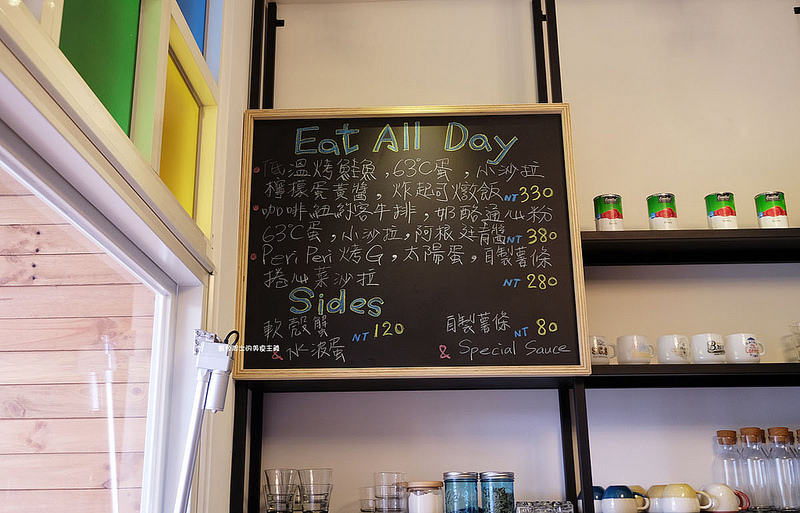 Eat All Day
低溫烤鮭魚,63°C蛋,小沙拉
檸檬蛋黃醬,炸起司燉飯 NT 330
咖啡紐約客牛排,奶酪通心粉
63°C蛋,小沙拉,阿根廷青醬 NT 380
Peri Peri 烤G,太陽蛋,自製薯條
捲心菜沙拉 NT 280
Sides
軟殼蟹 NT 120 自製薯條 NT 80
& 水波蛋 & Special Sauce